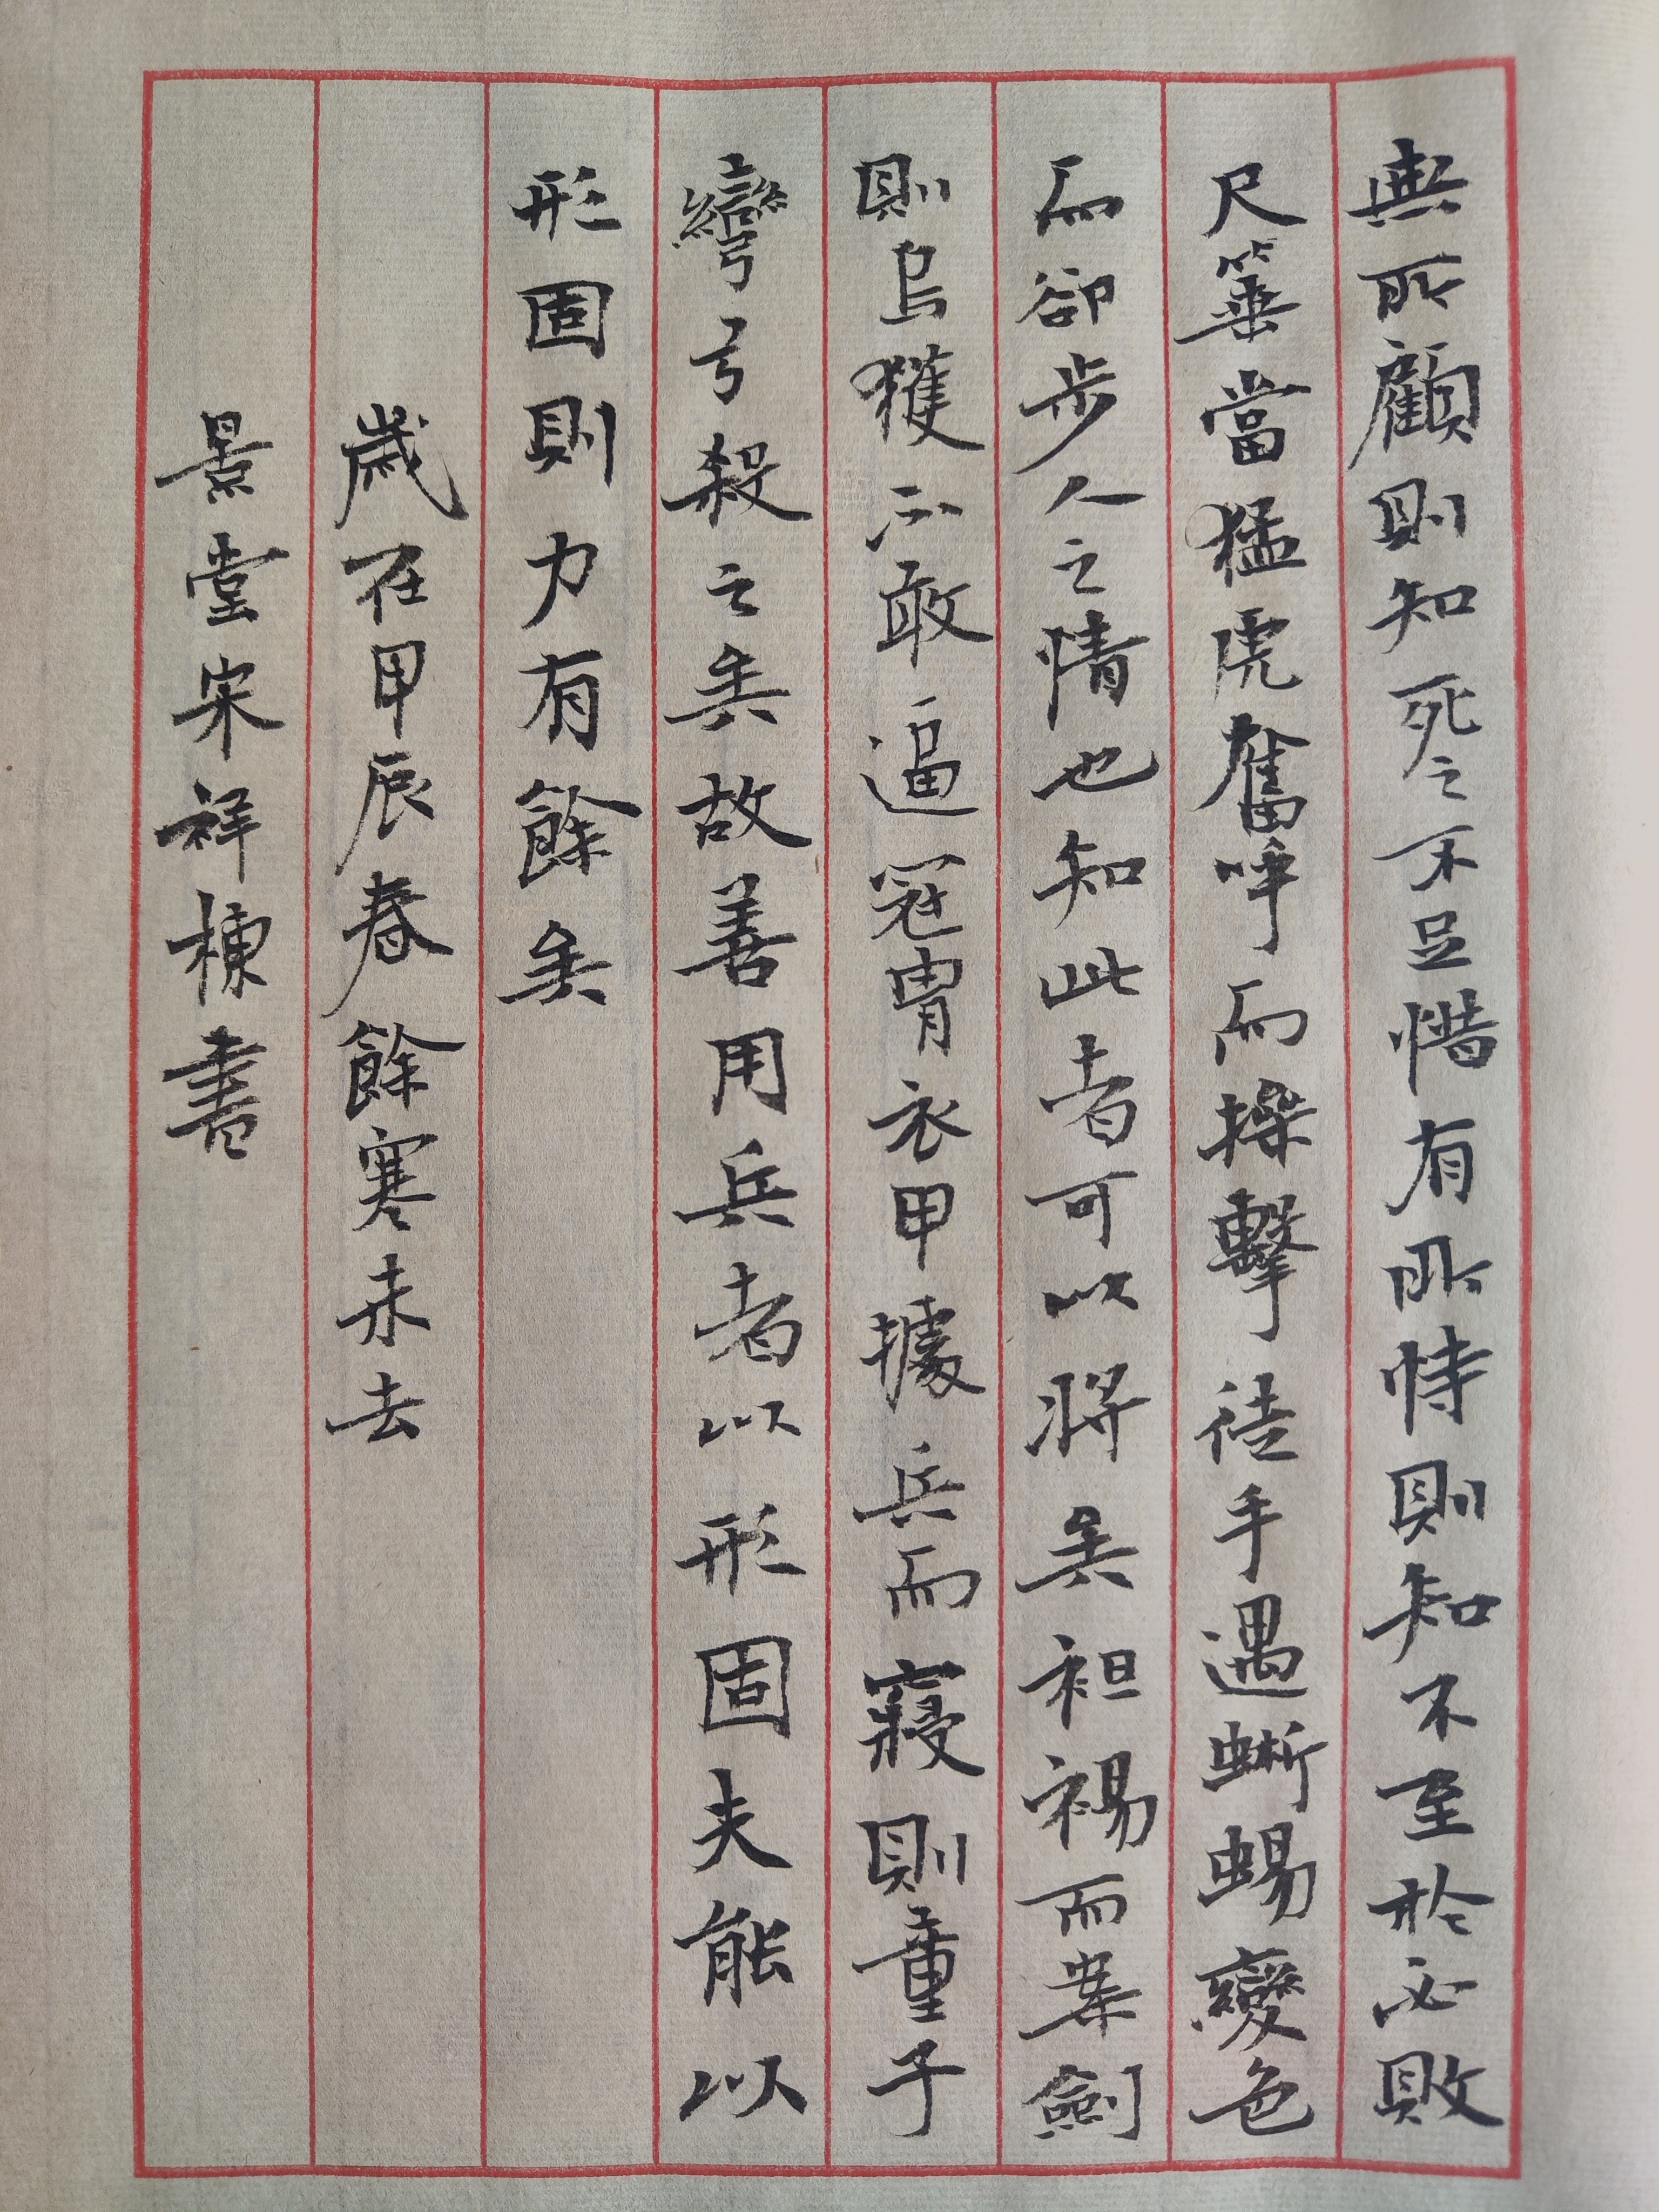 無所顧則知死之不足惜有所恃則知不至於必敗
尺箠當猛虎奮呼而操擊徒手遇蜥蜴變色
而卻步人之情也知此者可以將矣袒裼而案劍
則烏獲不敢逼冠冑衣甲據兵而寢則童子
彎弓殺之矣故善用兵者以形固夫能以
形固則力有餘矣
歲在甲辰春餘寒未去
景堂宋祥棟書